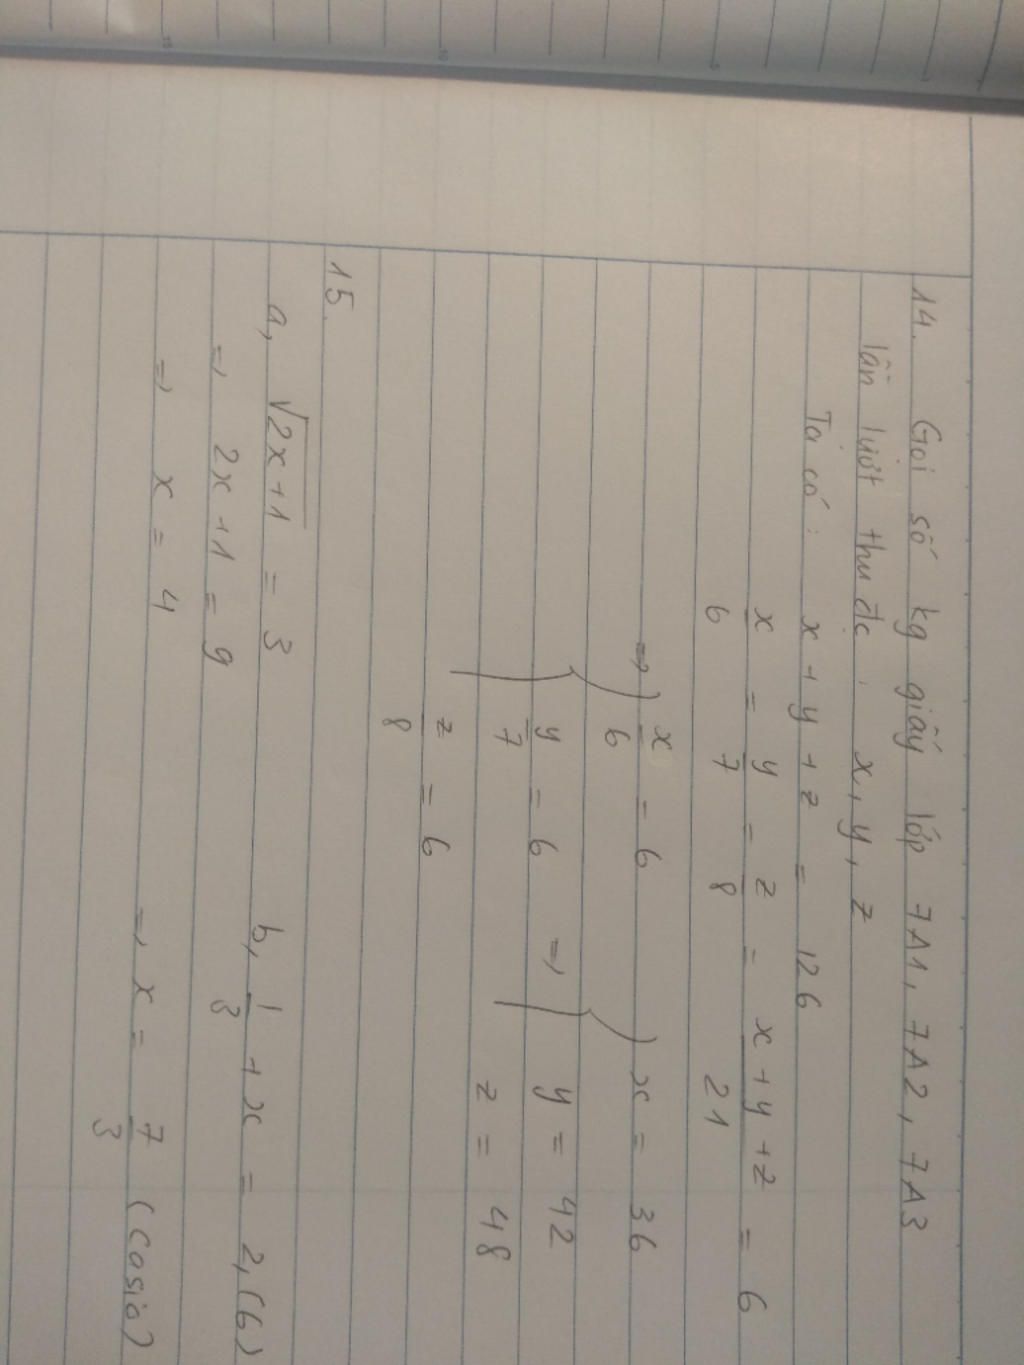 14. Gọi số kg giấy lớp 7A1, 7A2, 7A3
lần lượt thu đc : x, y, z
Ta có : x + y + z = 126
x/6 = y/7 = z/8 = x+y+z/21 = 6
=> { x/6 = 6
y/7 = 6 => { x = 36
z/8 = 6 y = 42
z = 48
15.
a, √2x+1 = 3
=> 2x + 1 = 9
=> x = 4
b, 1/3 + x = 2,(6)
=> x = 7/3 (casio)